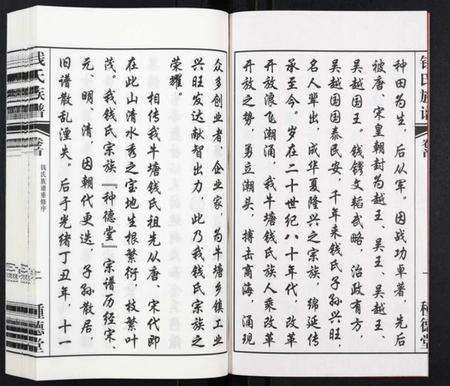 钱氏族谱
卷首
一
种德堂
种田为生,后从军。因战功卓著,先后
被唐、宋皇朝封为越王、吴王、吴越王、
吴越国王。钱镠文韬武略,治政有方,
吴越国国泰民安,千年来钱氏子孙兴旺,
名人辈出,成华夏隆兴之宗族,绵延传
承至今。岁在二十世纪八十年代,改革
开放浪飞潮涌,我牛塘钱氏族人乘改革
开放之势,勇立潮头,搏击商海,涌现
众多创业者、企业家,为牛塘乡镇工业
兴旺发达献智出力,此乃我钱氏宗族之
荣耀。
相传我牛塘钱氏祖先从唐、宋代即
在此山清水秀之宝地生根繁衍,枝繁叶
茂。我钱氏宗族『种德堂』宗谱历经宋、
元、明、清,因朝代更迭,子孙散居,
旧谱散乱湮失。后于光绪丁丑年,十一
钱氏族谱
卷首
钱氏族谱重修序
種德堂